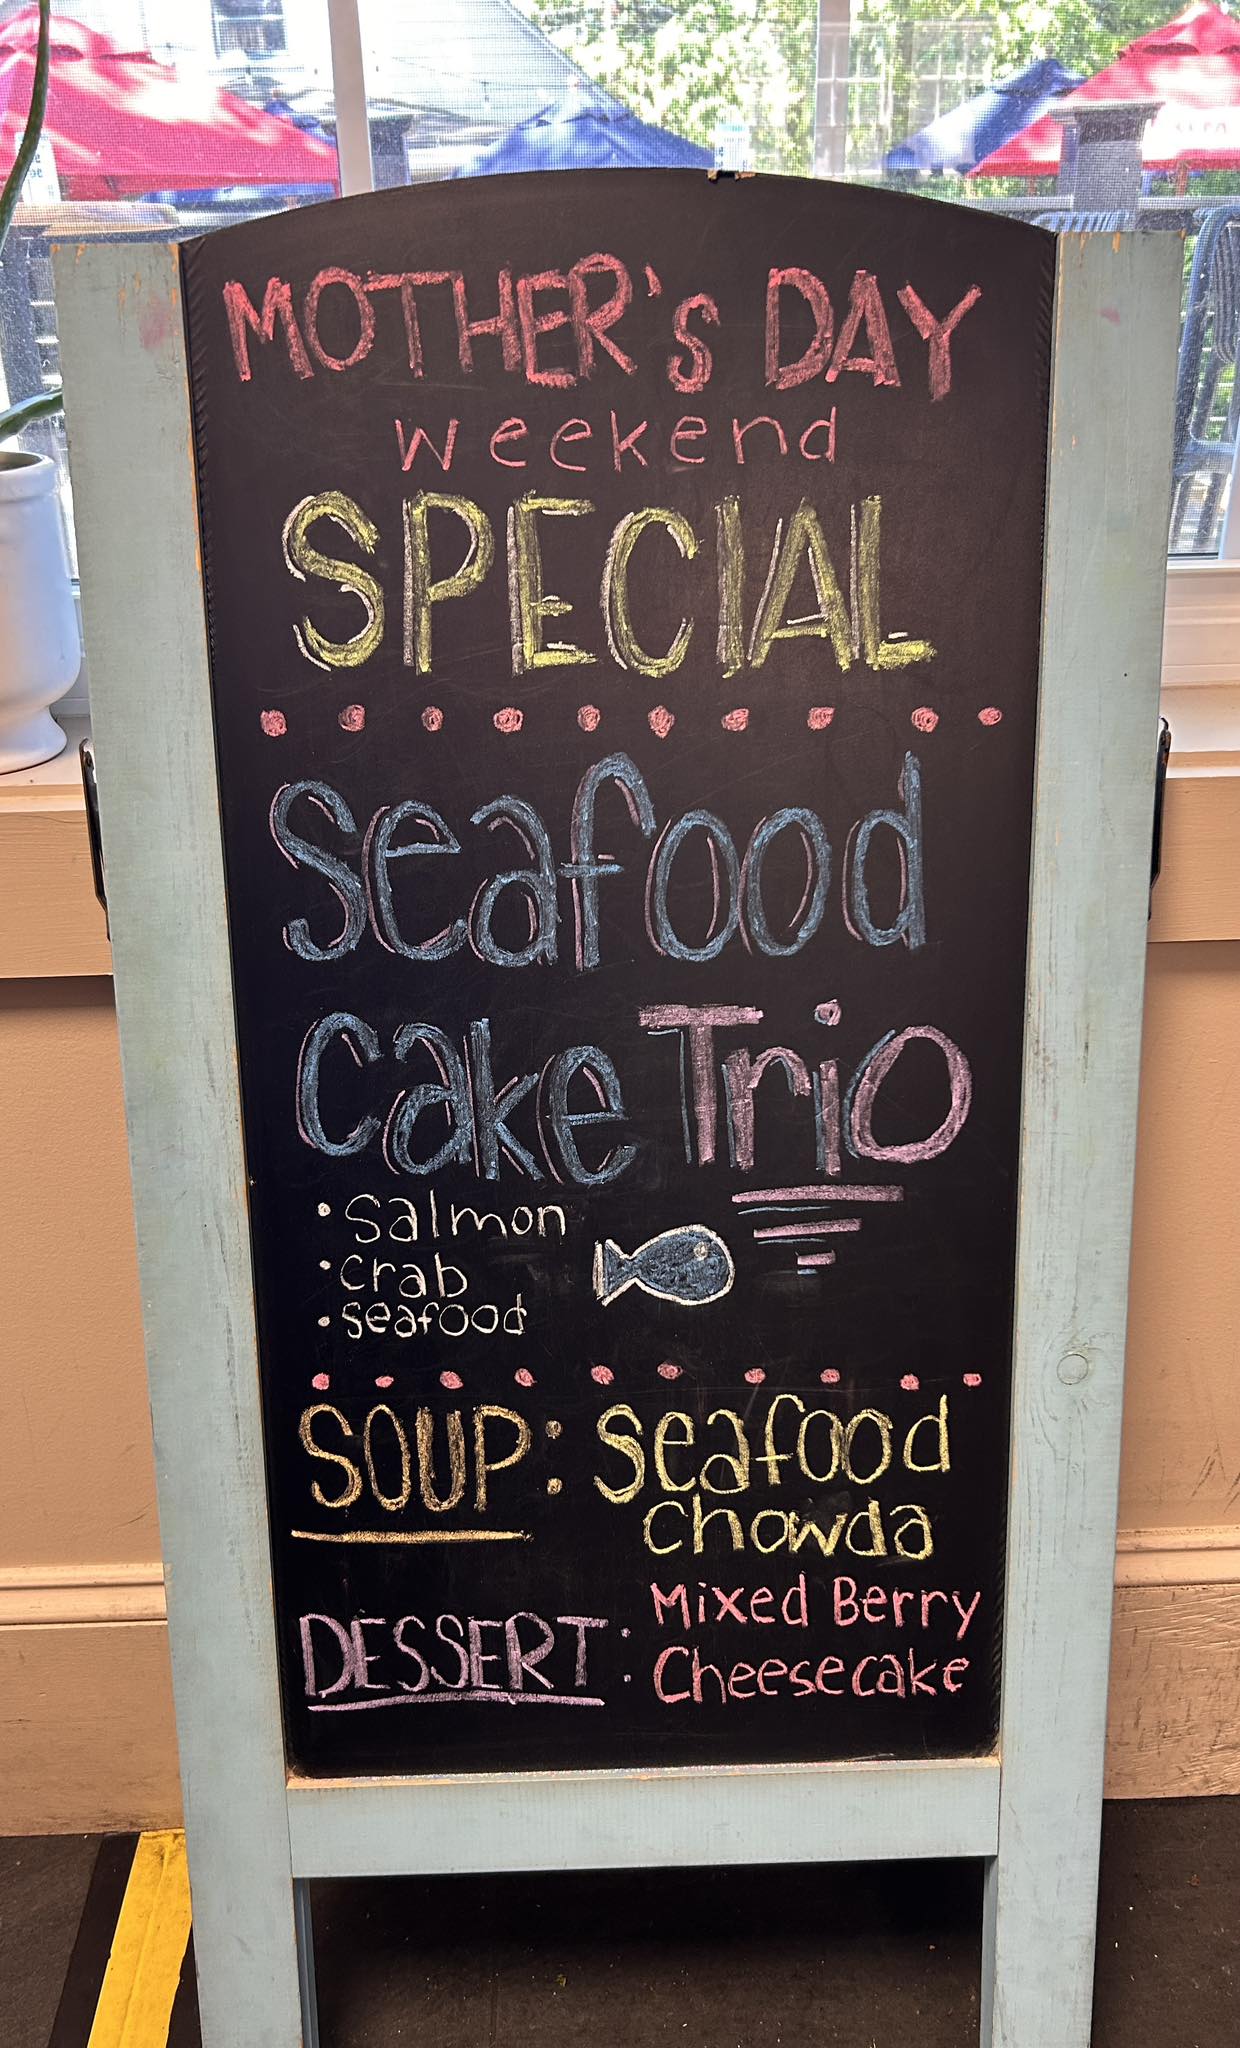 MOTHER'S DAY
weekend
SPECIAL
Seafood
Cake Trio
• Salmon
• crab
• seafood
SOUP: Seafood
Chowda
DESSERT: Mixed Berry
Cheesecake